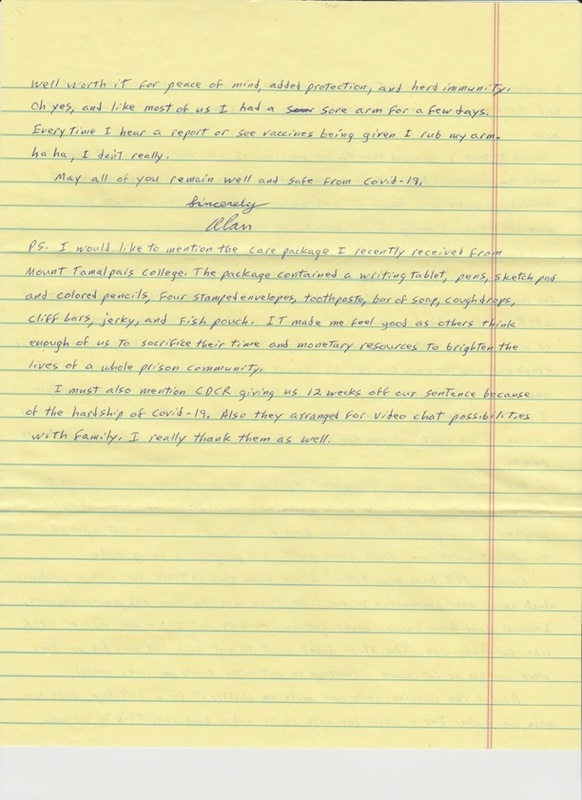 Well worth it for peace of mind, added protection, and herd immunity.
Oh yes, and like most of us I had a sore arm for a few days.
Every time I hear a report or see vaccines being given I rub my arm.
ha ha, I don't really.
May all of you remain well and safe from Covid-19.
Sincerely
Alan
PS. I would like to mention the care package I recently received from
Mount Tamalpais College. The package contained a writing tablet, pens, sketch pad
and colored pencils, four stamped envelopes, toothpaste, bar of soap, cough drops,
cliff bars, jerky, and fish pouch. IT made me feel good as others think
enough of us to sacrifice their time and monetary resources to brighten the
lives of a whole prison community.
I must also mention CDCR giving us 12 weeks off our sentence because
of the hardship of Covid-19. Also they arranged for video chat possibilities
with family. I really thank them as well.